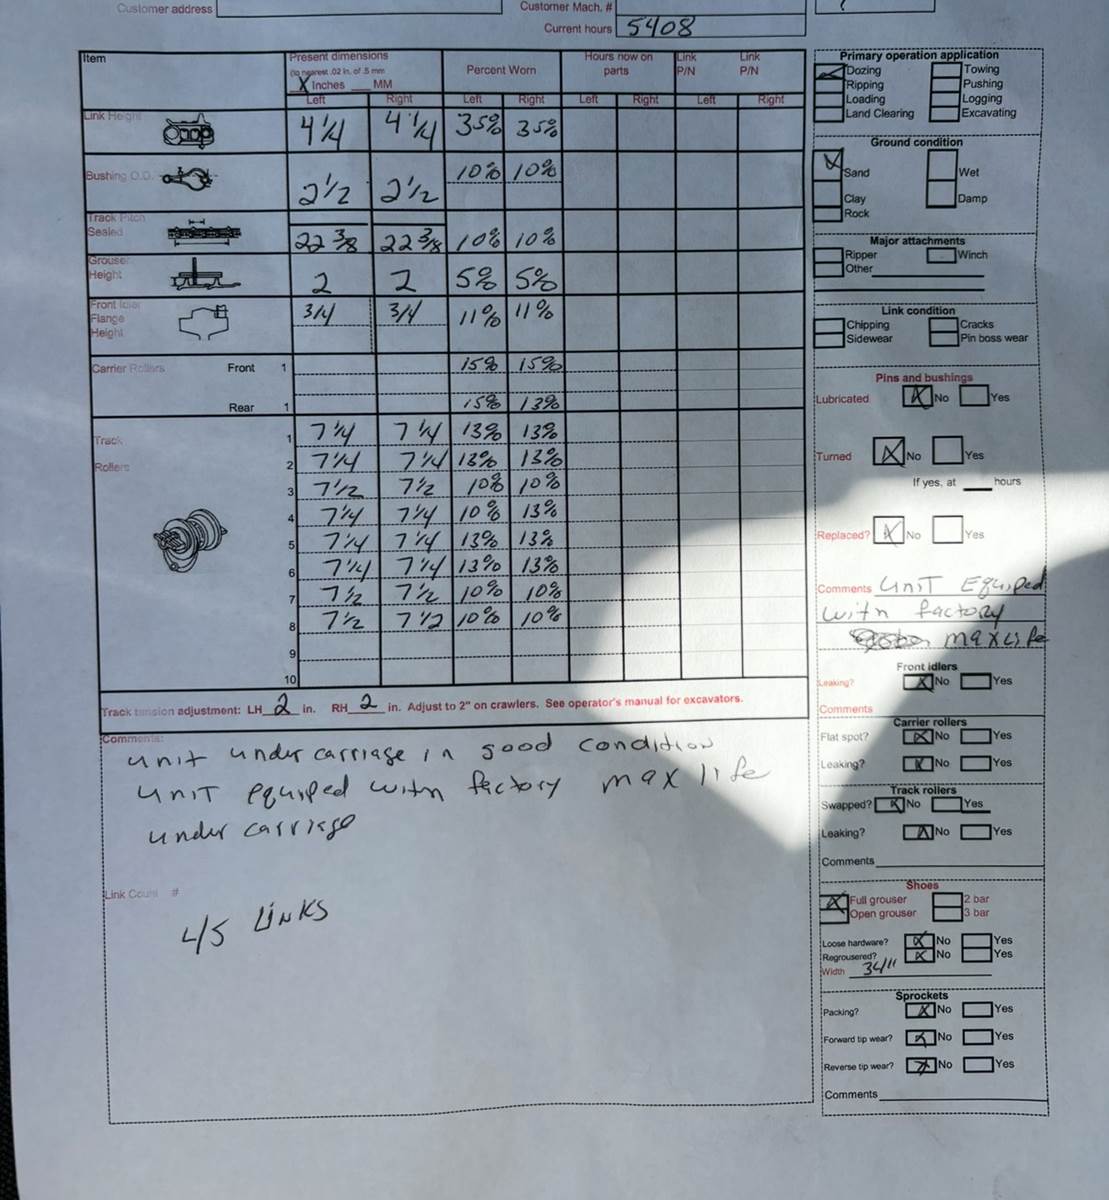 Customer address
Customer Mach. #
Current hours 5408
Item
Present dimensions
(to nearest .02 in. of .5 mm
X Inches ___ MM
Percent Worn
Hours now on parts
Link P/N
Link P/N
Left Right Left Right Left Right Left Right
Link Height 4 1/4 4 1/4 35% 35%
Bushing O.D. 2 1/2 2 1/2 10% 10%
Track Pitch Sealed 22 3/8 22 3/8 10% 10%
Grouser Height 2 2 5% 5%
Front Idler Flange Height 3/4 3/4 11% 11%
Carrier Rollers Front 1 15% 15%
Rear 1 15% 13%
Track Rollers
1 7 1/4 7 1/4 13% 13%
2 7 1/4 7 1/4 13% 13%
3 7 1/2 7 1/2 10% 10%
4 7 1/4 7 1/4 10% 13%
5 7 1/4 7 1/4 13% 13%
6 7 1/4 7 1/4 13% 13%
7 7 1/2 7 1/2 10% 10%
8 7 1/2 7 1/2 10% 10%
9
10
Track tension adjustment: LH 2 in. RH 2 in. Adjust to 2" on crawlers. See operator's manual for excavators.
Comments:
unit under carriage in good condition
unit equiped with factory max life
under carriage
Link Count #
45 Links
Primary operation application
Dozing Towing
Ripping Pushing
Loading Logging
Land Clearing Excavating
Ground condition
Sand Wet
Clay Damp
Rock
Major attachments
Ripper Winch
Other
Link condition
Chipping Cracks
Sidewear Pin boss wear
Pins and bushings
Lubricated X No Yes
Turned X No Yes
If yes, at ___ hours
Replaced? X No Yes
Comments unit Equiped
with factory
maxlife
Front idlers
Leaking? X No Yes
Comments
Carrier rollers
Flat spot? X No Yes
Leaking? X No Yes
Track rollers
Swapped? X No Yes
Leaking? X No Yes
Comments
Shoes
X Full grouser 2 bar
Open grouser 3 bar
Loose hardware? X No Yes
Regrousered? X No Yes
Width 34"
Sprockets
Packing? X No Yes
Forward tip wear? X No Yes
Reverse tip wear? X No Yes
Comments